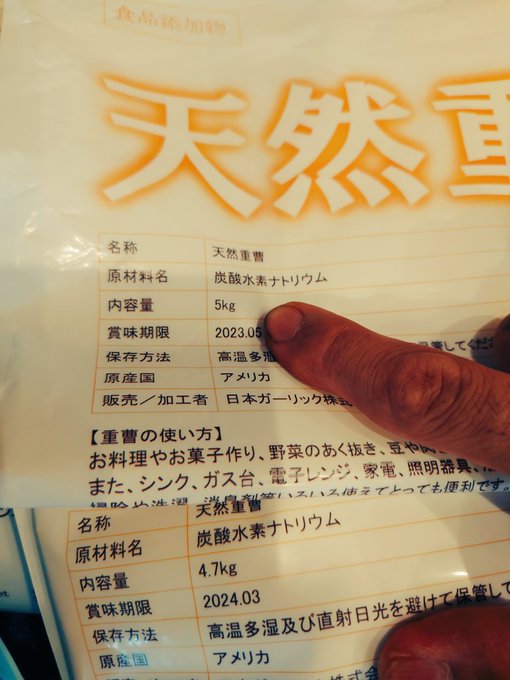 食品添加物
天然重
名称 天然重曹
原材料名 炭酸水素ナトリウム
内容量 5kg
賞味期限 2023.05
保存方法 高温多湿 保管してくださ
原産国 アメリカ
販売／加工者 日本ガーリック株式
【重曹の使い方】
お料理やお菓子作り、野菜のあく抜き、豆や肉
また、シンク、ガス台、電子レンジ、家電、照明器具、
掃除や洗濯、消臭剤等いろいろ使えてとっても便利です。
名称 天然重曹
原材料名 炭酸水素ナトリウム
内容量 4.7kg
賞味期限 2024.03
保存方法 高温多湿及び直射日光を避けて保管して
原産国 アメリカ
株式会